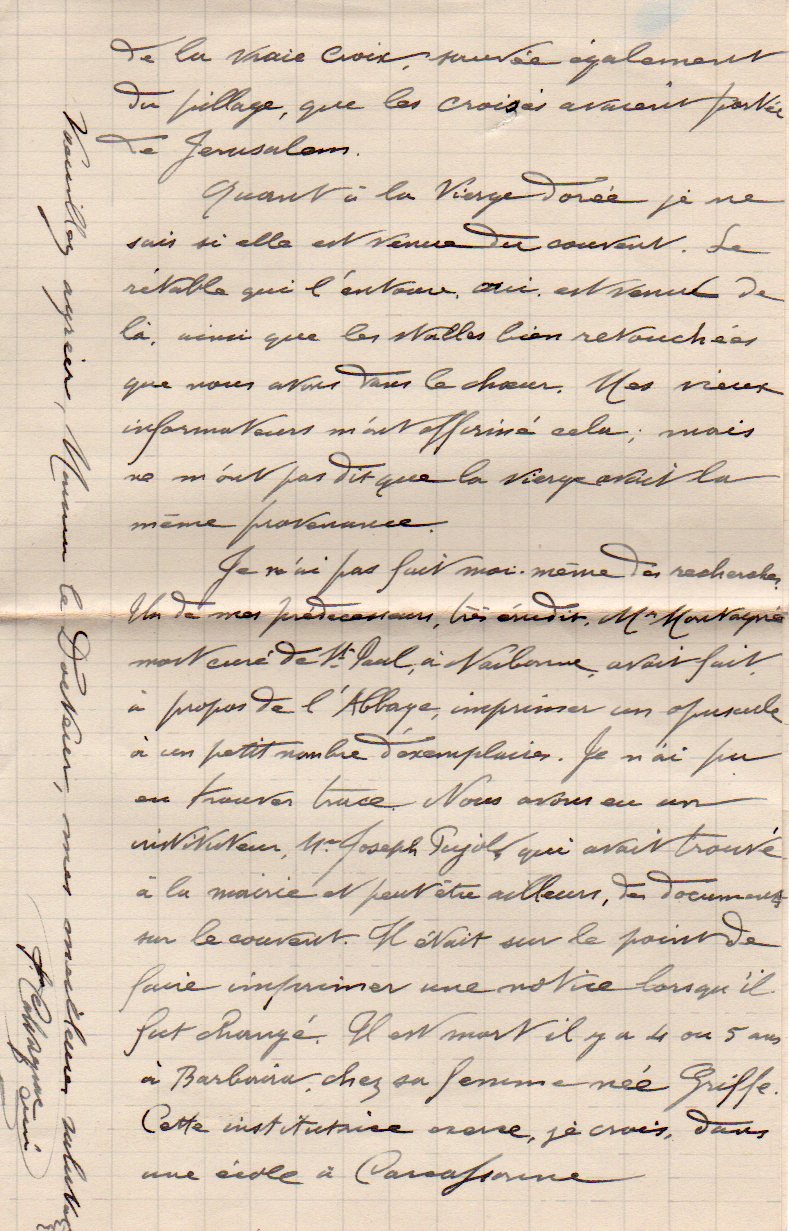 de la vraie Croix, sauvée également
du pillage, que les croisés avaient portée
de Jérusalem.
Quant à la Vierge Dorée je ne
sais si elle est venue du couvent. Le
rétable qui l'entoure, oui, est venu de
là, ainsi que les stalles bien retouchées
que nous avons dans le chœur. Mes vieux
informateurs m'ont affirmé cela; mais
ne m'ont pas dit que la vierge avait la
même provenance.
Je n'ai pas fait moi-même des recherches.
Un de mes prédécesseurs, très érudit, Mr Montagné
mort curé de St Paul, à Narbonne, avait fait,
à propos de l'Abbaye, imprimer un opuscule
à un petit nombre d'exemplaires. Je n'ai pu
en trouver trace. Nous avons eu un
instituteur, Mr Joseph Pujol, qui avait trouvé
à la mairie et peut être ailleurs, des documents
sur le couvent. Il était sur le point de
faire imprimer une notice lorsqu'il
fut changé. Il est mort il y a 4 ou 5 ans
à Barbaira, chez sa femme née Griffe.
Cette institutrice exerce, je crois, dans
une école à Carcassonne
Veuillez agréer, le Docteur, mes meilleures
curé